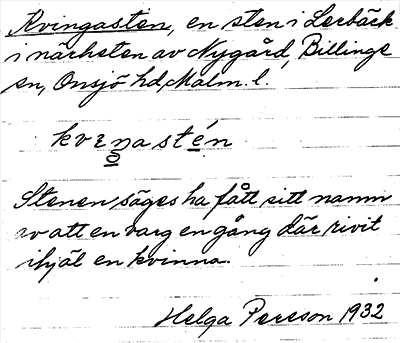 Kvingasten, en sten i Lerbäck
i närheten av Nygård, Billinge
sn, Onsjö hd, Malm. l.
kvenastén
Stenen säges ha fått sitt namn
av att en varg en gång där rivit
ihjäl en kvinna.
Helga Persson 1932